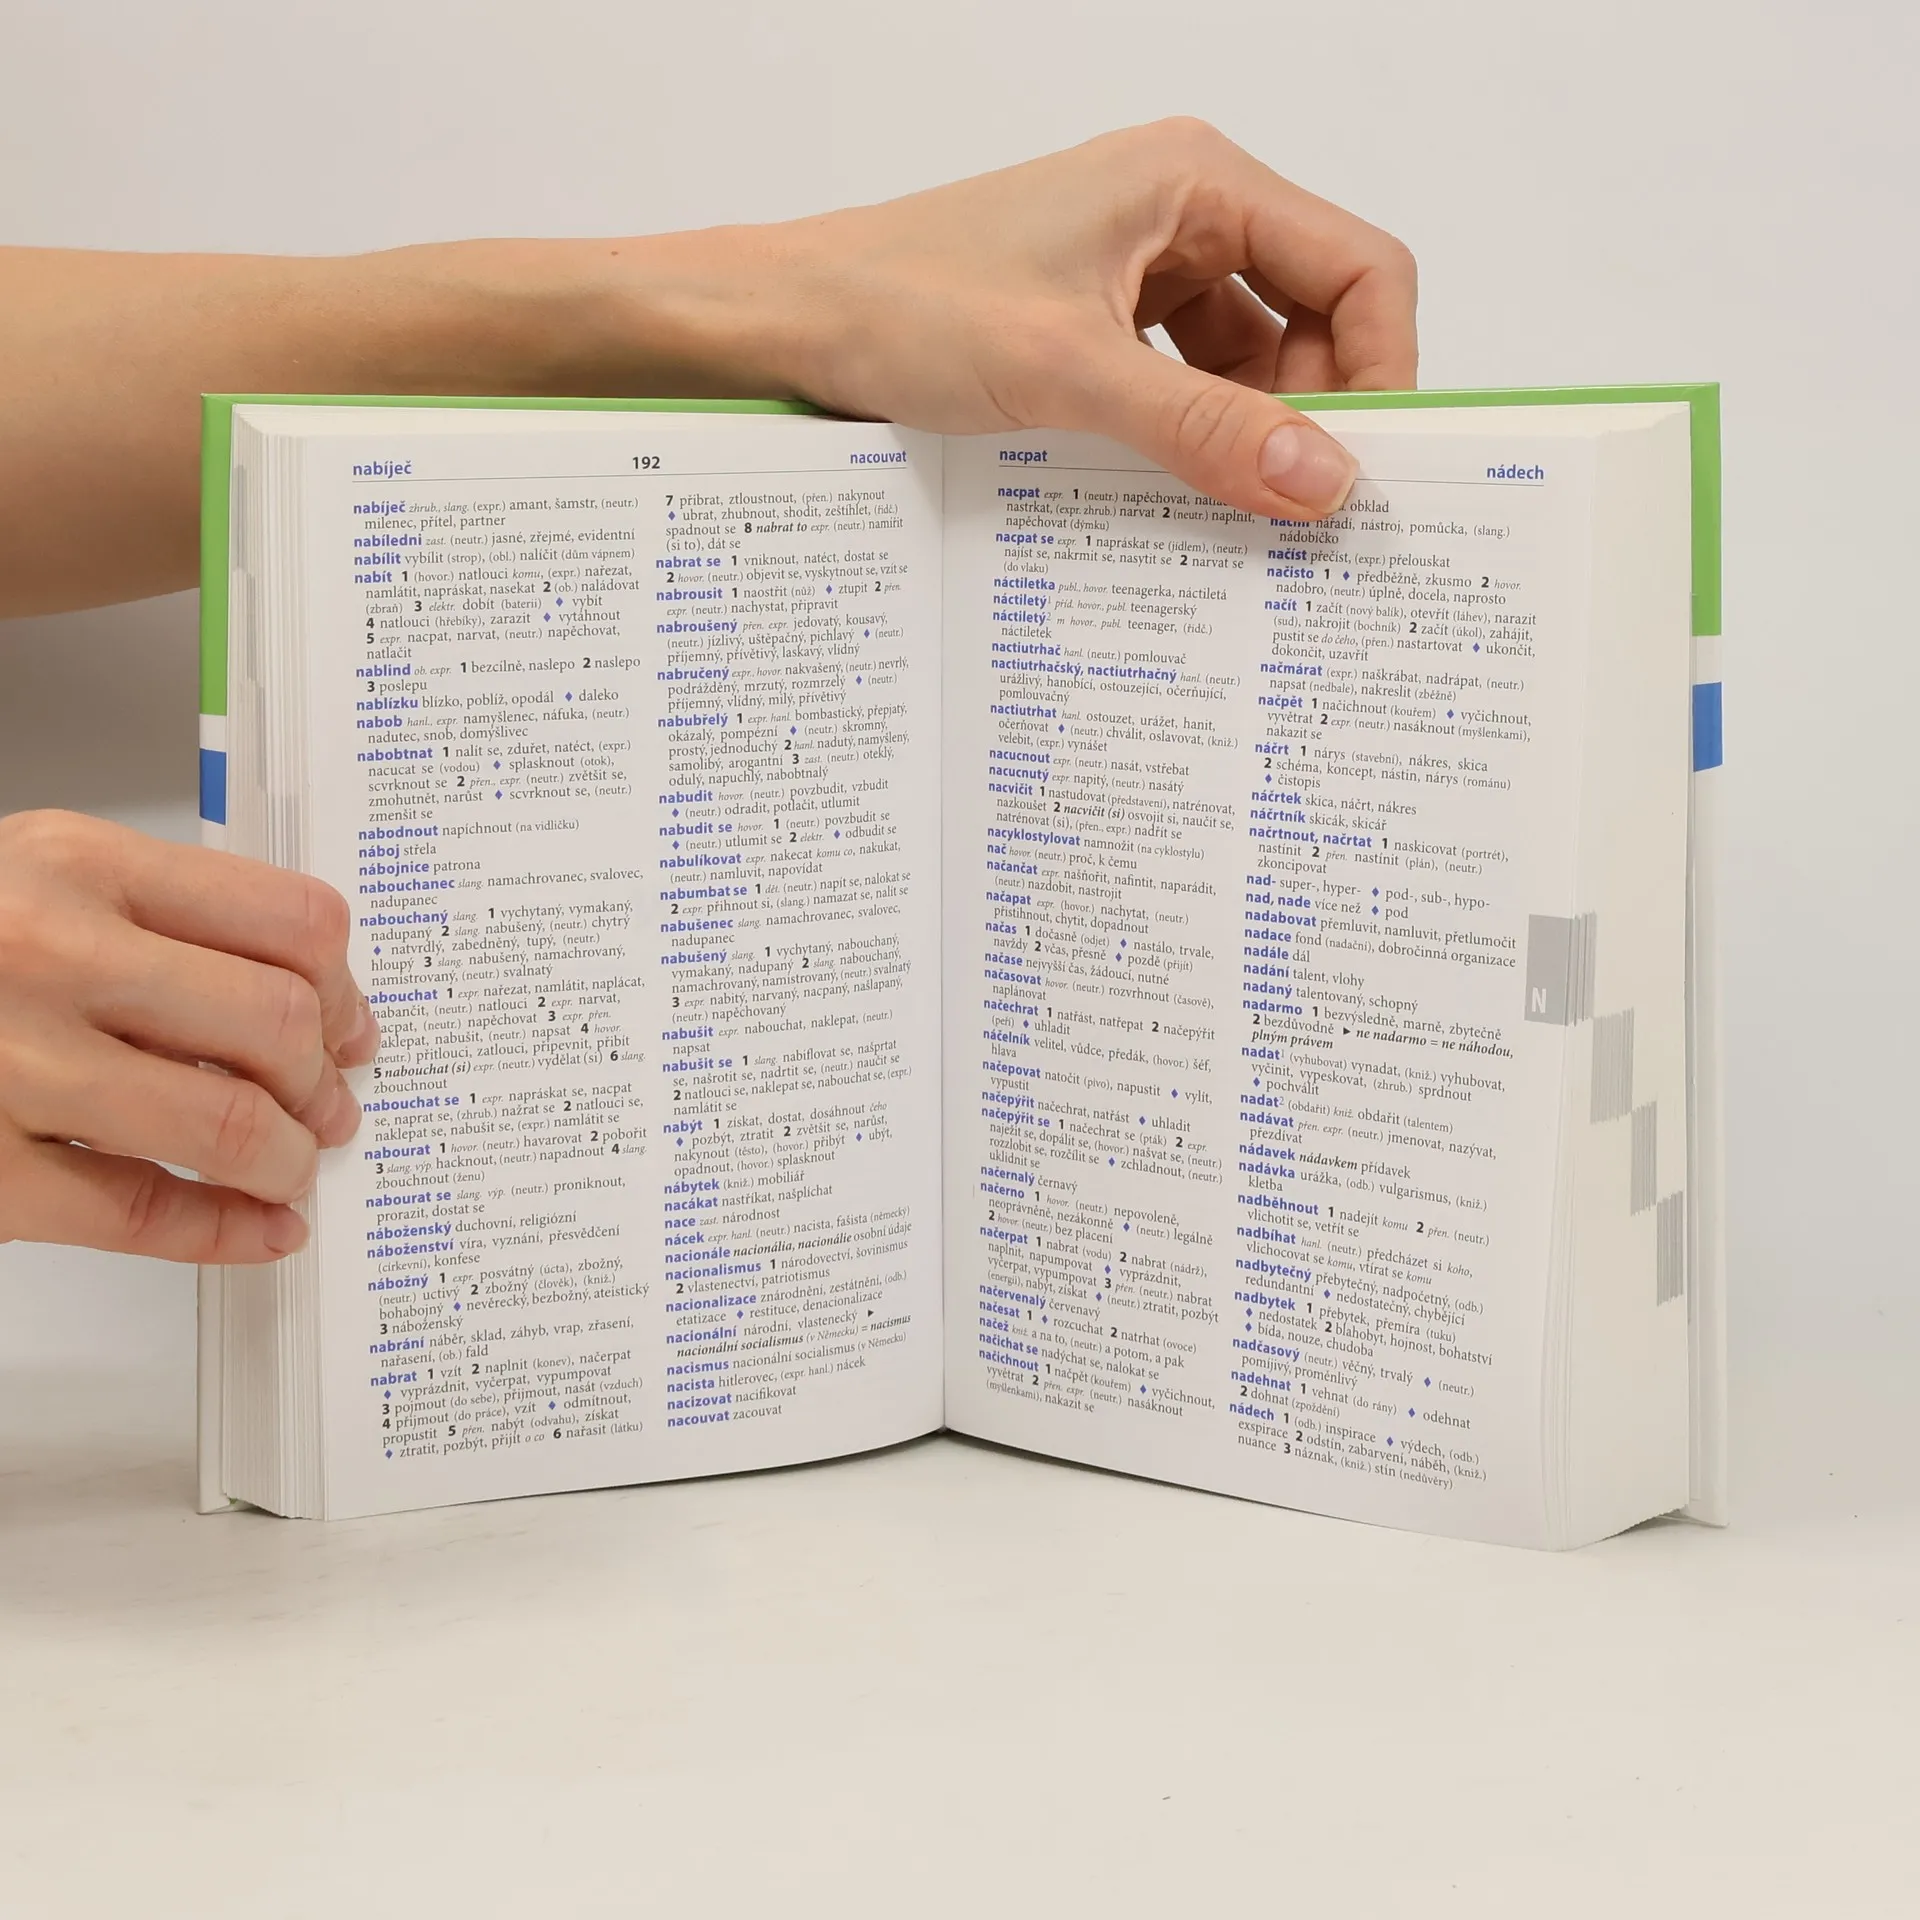 nabíječ 192 nacouvat
nabíječ zhrub., slang. (expr.) amant, šamstr, (neutr.)
milenec, přítel, partner
nabíledni zast. (neutr.) jasné, zřejmé, evidentní
nabílit vybílit (strop), (obl.) nalíčit (dům vápnem)
nabít 1 (hovor.) natlouci komu, (expr.) nařezat,
namlátit, napráskat, nasekat 2 (ob.) naládovat
(zbraň) 3 elektr. dobít (baterii) ♦ vybít
4 natlouci (hřebíky), zarazit ♦ vytáhnout
5 expr. nacpat, narvat, (neutr.) napěchovat,
natlačit
nablind ob. expr. 1 bezcílně, naslepo 2 naslepo
3 poslepu
nablízku blízko, poblíž, opodál ♦ daleko
nabob hanl., expr. namyšlenec, náfuka, (neutr.)
nadutec, snob, domýšlivec
nabobtnat 1 nalít se, zduřet, natéct, (expr.)
nacucat se (vodou) ♦ splasknout (otok),
scvrknout se 2 přen., expr. (neutr.) zvětšit se,
zmohutnět, narůst ♦ scvrknout se, (neutr.)
zmenšit se
nabodnout napíchnout (na vidličku)
náboj střela
nábojnice patrona
nabouchanec slang. namachrovanec, svalovec,
nadupanec
nabouchaný slang. 1 vychytaný, vymakaný,
nadupaný 2 slang. nabušený, (neutr.) chytrý
♦ natvrdlý, zabedněný, tupý, (neutr.)
hloupý 3 slang. nabušený, namachrovaný,
namistrovaný, (neutr.) svalnatý
abouchat 1 expr. nařezat, namlátit, naplácat,
nabančit, (neutr.) natlouci 2 expr. narvat,
acpat, (neutr.) napěchovat 3 expr. přen.
aklepat, nabušit, (neutr.) napsat 4 hovor.
(neutr.) přitlouci, zatlouci, připevnit, přibít
5 nabouchat (si) expr. (neutr.) vydělat (si) 6 slang.
zbouchnout
nabouchat se 1 expr. napráskat se, nacpat
se, naprat se, (zhrub.) nažrat se 2 natlouci se,
naklepat se, nabušit se, (expr.) namlátit se
nabourat 1 hovor. (neutr.) havarovat 2 pobořit
3 slang. výp. hacknout, (neutr.) napadnout 4 slang.
zbouchnout (ženu)
nabourat se slang. výp. (neutr.) proniknout,
prorazit, dostat se
náboženský duchovní, religiózní
náboženství víra, vyznání, přesvědčení
(církevní), konfese
nábožný 1 expr. posvátný (úcta), zbožný,
(neutr.) uctivý 2 zbožný (člověk), (kniž.)
bohabojný ♦ nevěrecký, bezbožný, ateistický
3 náboženský
nabrání náběr, sklad, záhyb, vrap, zřasení,
nařasení, (ob.) fald
nabrat 1 vzít 2 naplnit (konev), načerpat
♦ vyprázdnit, vyčerpat, vypumpovat
3 pojmout (do sebe), přijmout, nasát (vzduch)
4 přijmout (do práce), vzít ♦ odmítnout,
propustit 5 přen. nabýt (odvahu), získat
♦ ztratit, pozbýt, přijít o co 6 nařasit (látku)
7 přibrat, ztloustnout, (přen.) nakynout
♦ ubrat, zhubnout, shodit, zeštíhlet, (řidč.)
spadnout se 8 nabrat to expr. (neutr.) namířit
(si to), dát se
nabrat se 1 vniknout, natéct, dostat se
2 hovor. (neutr.) objevit se, vyskytnout se, vzít se
nabrousit 1 naostřit (nůž) ♦ ztupit 2 přen.
expr. (neutr.) nachystat, připravit
nabroušený přen. expr. jedovatý, kousavý,
(neutr.) jízlivý, uštěpačný, pichlavý ♦ (neutr.)
příjemný, přívětivý, laskavý, vlídný
nabručený expr., hovor. nakvašený, (neutr.) nevrlý,
podrážděný, mrzutý, rozmrzelý ♦ (neutr.)
příjemný, vlídný, milý, přívětivý
nabubřelý 1 expr. hanl. bombastický, přepjatý,
okázalý, pompézní ♦ (neutr.) skromný,
prostý, jednoduchý 2 hanl. nadutý, namyšlený,
samolibý, arogantní 3 zast. (neutr.) oteklý,
odulý, napuchlý, nabobtnalý
nabudit hovor. (neutr.) povzbudit, vzbudit
♦ (neutr.) odradit, potlačit, utlumit
nabudit se hovor. 1 (neutr.) povzbudit se
♦ (neutr.) utlumit se 2 elektr. ♦ odbudit se
nabulíkovat expr. nakecat komu co, nakukat,
(neutr.) namluvit, napovídat
nabumbat se 1 dět. (neutr.) napít se, nalokat se
2 expr. přihnout si, (slang.) namazat se, nalít se
nabušenec slang. namachrovanec, svalovec,
nadupanec
nabušený slang. 1 vychytaný, nabouchaný,
vymakaný, nadupaný 2 slang. nabouchaný,
namachrovaný, namistrovaný, (neutr.) svalnatý
3 expr. nabitý, narvaný, nacpaný, našlapaný,
(neutr.) napěchovaný
nabušit expr. nabouchat, naklepat, (neutr.)
napsat
nabušit se 1 slang. nabiflovat se, našprtat
se, našrotit se, nadrtit se, (neutr.) naučit se
2 natlouci se, naklepat se, nabouchat se, (expr.)
namlátit se
nabýt 1 získat, dostat, dosáhnout čeho
♦ pozbýt, ztratit 2 zvětšit se, narůst,
nakynout (těsto), (hovor.) přibýt ♦ ubýt,
opadnout, (hovor.) splasknout
nábytek (kniž.) mobiliář
nacákat nastříkat, našplíchat
nace zast. národnost
nácek expr. hanl. (neutr.) nacista, fašista (německý)
nacionále nacionália, nacionálie osobní údaje
nacionalismus 1 národovectví, šovinismus
2 vlastenectví, patriotismus
nacionalizace znárodnění, zestátnění, (odb.)
etatizace ♦ restituce, denacionalizace
nacionální národní, vlastenecký ▶
nacionální socialismus (v Německu) = nacismus
nacismus nacionální socialismus (v Německu)
nacista hitlerovec, (expr. hanl.) nácek
nacizovat nacifikovat
nacouvat zacouvat
nacpat nádech
nacpat expr. 1 (neutr.) napěchovat,
nastrkat, (expr. zhrub.) narvat 2 (neutr.) naplnit,
napěchovat (dýmku)
nacpat se expr. 1 napráskat se (jídlem), (neutr.)
najíst se, nakrmit se, nasytit se 2 narvat se
(do vlaku)
náctiletka publ., hovor. teenagerka, náctiletá
náctiletý¹ příd. hovor., publ. teenagerský
náctiletý² m hovor., publ. teenager, (řidč.)
náctiletek
nactiutrhač hanl. (neutr.) pomlouvač
nactiutrhačský, nactiutrhačný hanl. (neutr.)
urážlivý, hanobící, ostouzející, očerňující,
pomlouvačný
nactiutrhat hanl. ostouzet, urážet, hanit,
očerňovat ♦ (neutr.) chválit, oslavovat, (kniž.)
velebit, (expr.) vynášet
nacucnout expr. (neutr.) nasát, vstřebat
nacucnutý expr. napitý, (neutr.) nasátý
nacvičit 1 nastudovat (představení), natrénovat,
nazkoušet 2 nacvičit (si) osvojit si, naučit se,
natrénovat (si), (přen., expr.) nadřít se
nacyklostylovat namnožit (na cyklostylu)
nač hovor. (neutr.) proč, k čemu
načančat expr. našňořit, nafintit, naparádit,
(neutr.) nazdobit, nastrojit
načapat expr. (hovor.) nachytat, (neutr.)
přistihnout, chytit, dopadnout
načas 1 dočasně (odjet) ♦ nastálo, trvale,
navždy 2 včas, přesně ♦ pozdě (přijít)
načase nejvyšší čas, žádoucí, nutné
načasovat hovor. (neutr.) rozvrhnout (časově),
naplánovat
načechrat 1 natřást, natřepat 2 načepýřit
(peří) ♦ uhladit
náčelník velitel, vůdce, předák, (hovor.) šéf,
hlava
načepovat natočit (pivo), napustit ♦ vylít,
vypustit
načepýřit načechrat, natřást ♦ uhladit
načepýřit se 1 načechrat se (pták) 2 expr.
naježit se, dopálit se, (hovor.) našvat se, (neutr.)
rozzlobit se, rozčílit se ♦ zchladnout, (neutr.)
uklidnit se
načernalý černavý
načerno 1 hovor. (neutr.) nepovoleně,
neoprávněně, nezákonně ♦ (neutr.) legálně
2 hovor. (neutr.) bez placení
načerpat 1 nabrat (vodu) 2 nabrat (nádrž),
naplnit, napumpovat ♦ vyprázdnit,
vyčerpat, vypumpovat 3 přen. (neutr.) nabrat
(energii), nabýt, získat ♦ (neutr.) ztratit, pozbýt
načervenalý červenavý
načesat 1 ♦ rozcuchat 2 natrhat (ovoce)
načež kniž. a na to, (neutr.) a potom, a pak
načichat se nadýchat se, nalokat se
načichnout 1 načpět (kouřem) ♦ vyčichnout,
vyvětrat 2 přen. expr. (neutr.) nasáknout
(myšlenkami), nakazit se
obklad
náčiní nářadí, nástroj, pomůcka, (slang.)
nádobíčko
načíst přečíst, (expr.) přelouskat
načisto 1 ♦ předběžně, zkusmo 2 hovor.
nadobro, (neutr.) úplně, docela, naprosto
načít 1 začít (nový balík), otevřít (láhev), narazit
(sud), nakrojit (bochník) 2 začít (úkol), zahájit,
pustit se do čeho, (přen.) nastartovat ♦ ukončit,
dokončit, uzavřít
načmárat (expr.) naškrábat, nadrápat, (neutr.)
napsat (nedbale), nakreslit (zběžně)
načpět 1 načichnout (kouřem) ♦ vyčichnout,
vyvětrat 2 expr. (neutr.) nasáknout (myšlenkami),
nakazit se
náčrt 1 nárys (stavební), nákres, skica
2 schéma, koncept, nástin, nárys (románu)
♦ čistopis
náčrtek skica, náčrt, nákres
náčrtník skicák, skicář
načrtnout, načrtat 1 naskicovat (portrét),
nastínit 2 přen. nastínit (plán), (neutr.)
zkoncipovat
nad- super-, hyper- ♦ pod-, sub-, hypo-
nad, nade více než ♦ pod
nadabovat přemluvit, namluvit, přetlumočit
nadace fond (nadační), dobročinná organizace
nadále dál
nadání talent, vlohy
nadaný talentovaný, schopný
nadarmo 1 bezvýsledně, marně, zbytečně
2 bezdůvodně ▶ ne nadarmo = ne náhodou,
plným právem
nadat¹ (vyhubovat) vynadat, (kniž.) vyhubovat,
vyčinit, vypeskovat, (zhrub.) sprdnout
♦ pochválit
nadat² (obdařit) kniž. obdařit (talentem)
nadávat přen. expr. (neutr.) jmenovat, nazývat,
přezdívat
nádavek nádavkem přídavek
nadávka urážka, (odb.) vulgarismus, (kniž.)
kletba
nadběhnout 1 nadejít komu 2 přen. (neutr.)
vlichotit se, vetřít se
nadbíhat hanl. (neutr.) předcházet si koho,
vlichocovat se komu, vtírat se komu
nadbytečný přebytečný, nadpočetný, (odb.)
redundantní ♦ nedostatečný, chybějící
nadbytek 1 přebytek, přemíra (tuku)
♦ nedostatek 2 blahobyt, hojnost, bohatství
♦ bída, nouze, chudoba
nadčasový (neutr.) věčný, trvalý ♦ (neutr.)
pomíjivý, proměnlivý
nadehnat 1 vehnat (do rány) ♦ odehnat
2 dohnat (zpoždění)
nádech 1 (odb.) inspirace ♦ výdech, (odb.)
exspirace 2 odstín, zabarvení, náběh, (kniž.)
nuance 3 náznak, (kniž.) stín (nedůvěry)
N